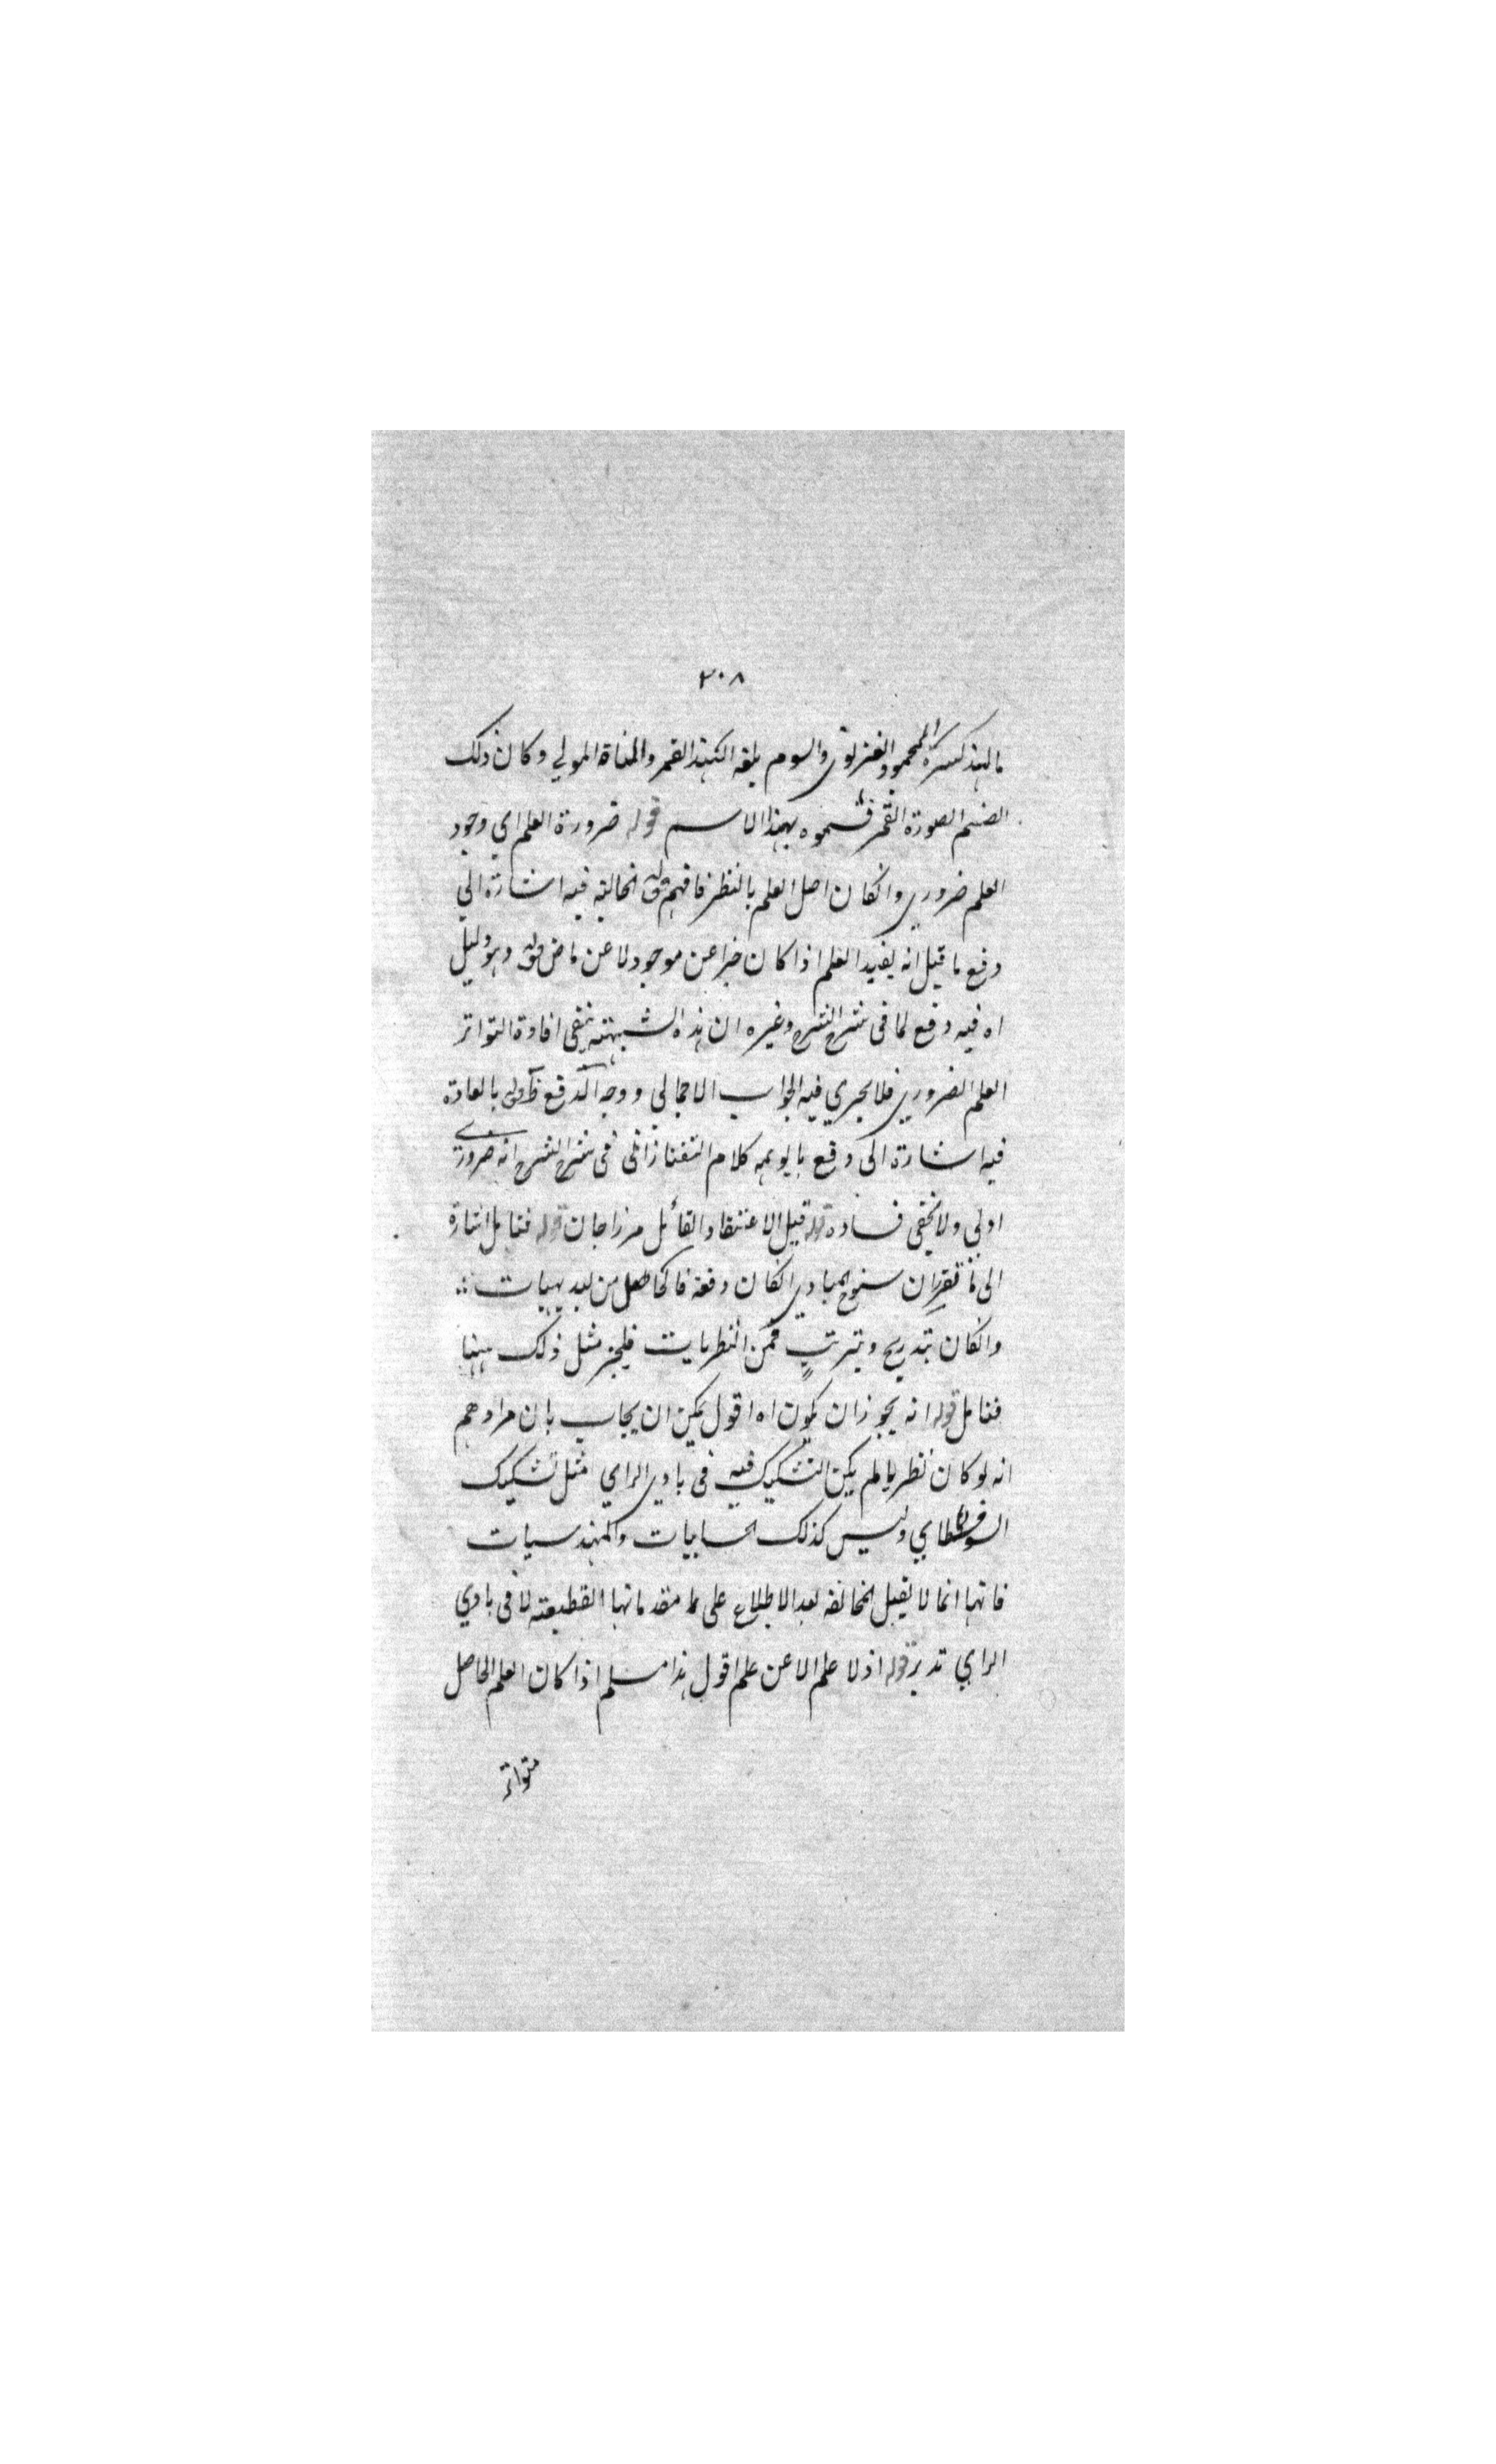 ٣٠٨
بالهند كسره المحمود الغزنوي والسوم بلغة الهند القمر والمناة المولي وكان ذلك
الصنم الصورة القمر فسموه بهذا الاسم قوله ضرورة العلم اي وجود
العلم ضروري وانكان اصل العلم بالنظر فافهم قوله الخالية فيه اشارة الي
دفع ما قيل انه يفيد العلم اذا كان خبرا عن موجود لا عن ماض قوله وهو دليل
اه فيه دفع لما في شرح الشرح وغيره ان هذه الشبهة تنفي افادة التواتر
العلم الضروري فلا يجري فيه الجواب الاجمالي ووجه الدفع ظ قوله بالعادة
فيه اشارة الى دفع ما يوهمه كلام التفتازاني في شرح الشرح انه ضروري
اولي ولا يخفى فساده قوله قبل الاعتقاد القائل مرزاجان قوله فتامل اشارة
الى ما تقرر ان سنوح المبادي انكان دفعة فالحاصل من البديهيات
وانكان بتدريج وبترتب فمن النظريات فليجز مثل ذلك ههنا
فتامل قوله انه يجوز ان يكون اه اقول يمكن ان يجاب بان مرادهم
انه لو كان نظريا لم يكن التشكيك فيه في بادي الراي مثل تشكيك
السوفسطاي وليس كذلك الحسابيات والهندسيات
فانها انما لا يقبل المخالفة بعد الاطلاع على مقدماتها القطعية لا في بادي
الراي تدبر قوله اذ لا علم الا عن علم اقول هذا مسلم اذا كان العلم الحاصل
متواتر